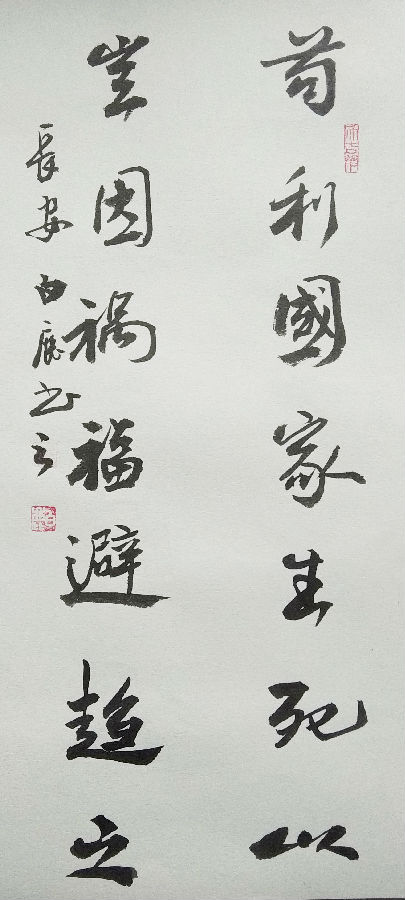 苟利國家生死以
豈因禍福避趨之
長安白展书之